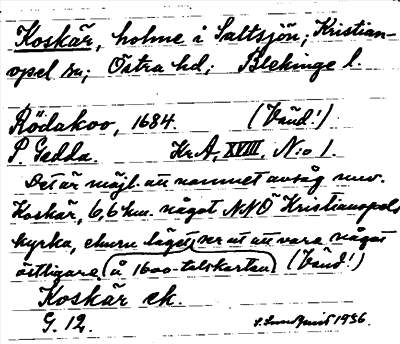 Koskär, holme i Saltsjön; Kristian-
opel sn; Östra hd; Blekinge l.
Rödakoo, 1684. (Vänd!)
P. Gedda. Kr.A, XVIII, N:o 1.
Det är möjl. att namnet avsåg nuv.
Koskär, 6,6 km. något NNÖ Kristianopels
kyrka, ehuru läget ser ut att vara något
östligare (å 1600-talskartan) (Vänd!)
Koskär ek.
G. 12. 1936.